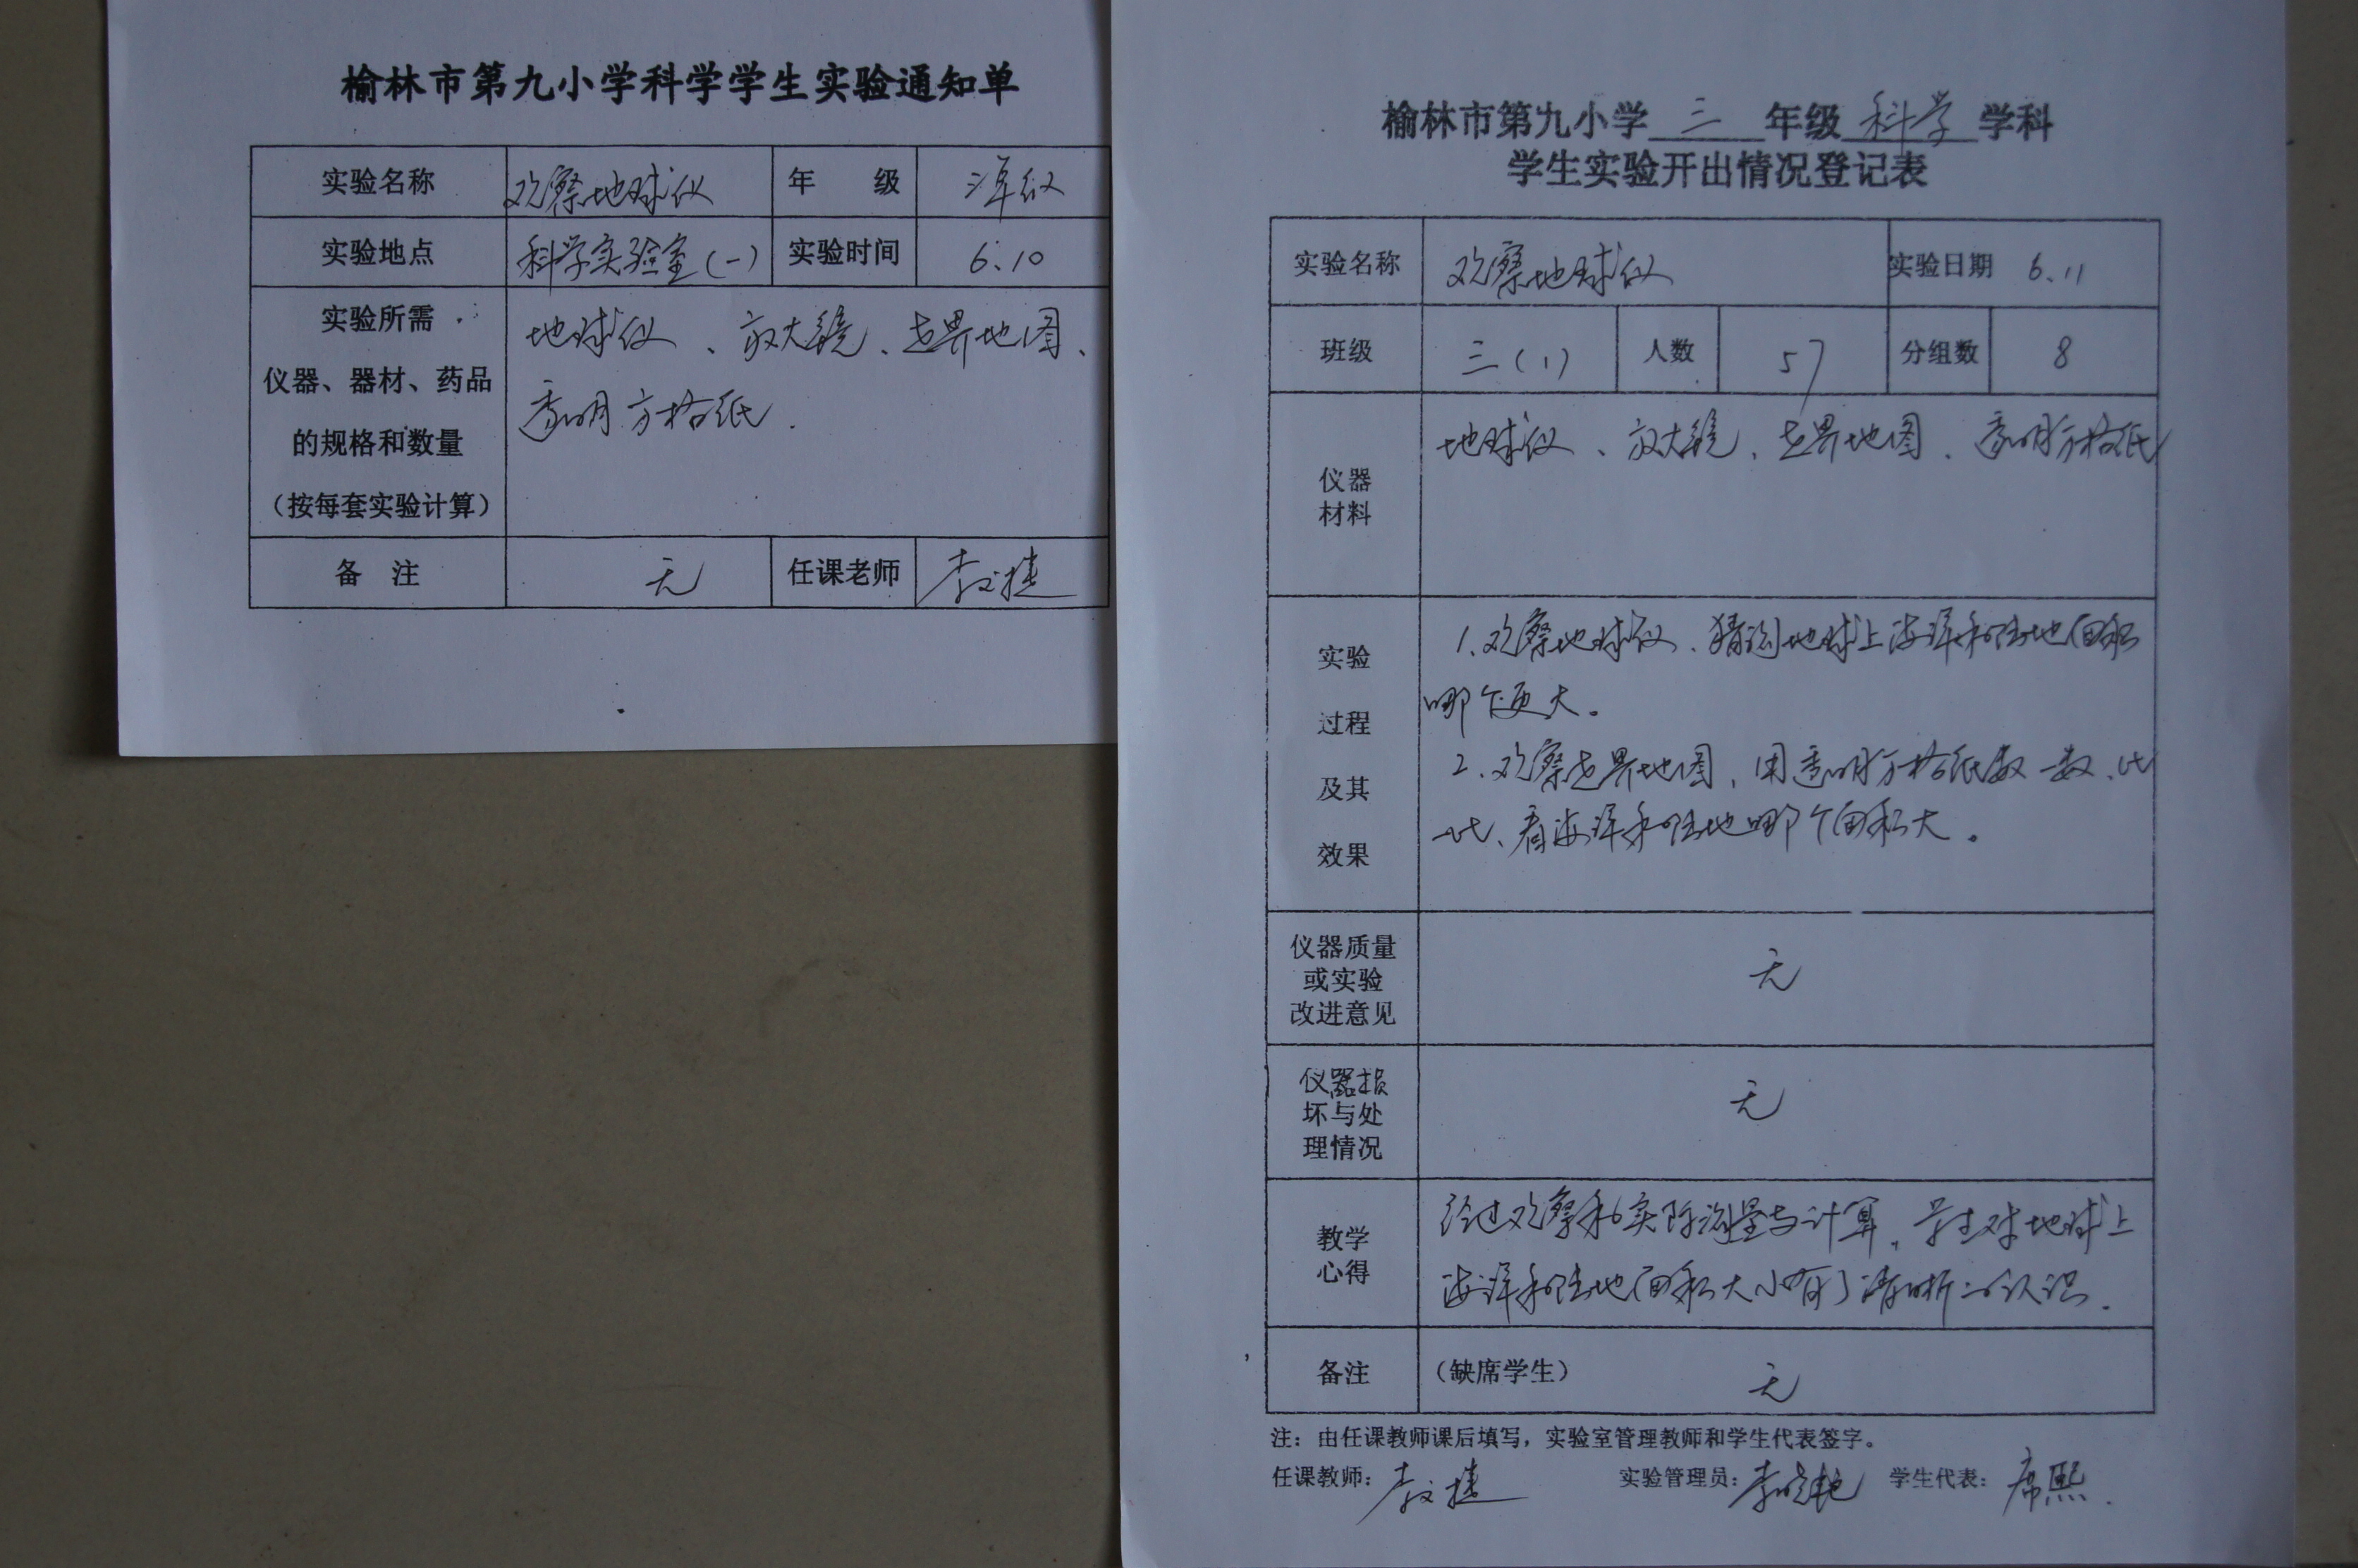 榆林市第九小学科学学生实验通知单
实验名称 观察地球仪 年 级 三年级
实验地点 科学实验室(一) 实验时间 6.10
实验所需
仪器、器材、药品
的规格和数量
（按每套实验计算）
地球仪、放大镜、世界地图、
透明方格纸.
备 注 无 任课老师
榆林市第九小学 三 年级 科学 学科
学生实验开出情况登记表
实验名称 观察地球仪 实验日期 6.11
班级 三(1) 人数 57 分组数 8
仪器
材料
地球仪、放大镜、世界地图、透明方格纸
实验
过程
及其
效果
1.观察地球仪、猜测地球上海洋和陆地面积
哪个更大。
2.观察世界地图,用透明方格纸数一数、比
一比、看海洋和陆地哪个面积大。
仪器质量
或实验
改进意见
无
仪器损
坏与处
理情况
无
教学
心得
经过观察和实际测量与计算,学生对地球上
海洋和陆地面积大小有了清晰的认识.
备注 （缺席学生） 无
注：由任课教师课后填写，实验室管理教师和学生代表签字。
任课教师: 实验管理员: 李晓艳 学生代表: 席熙.